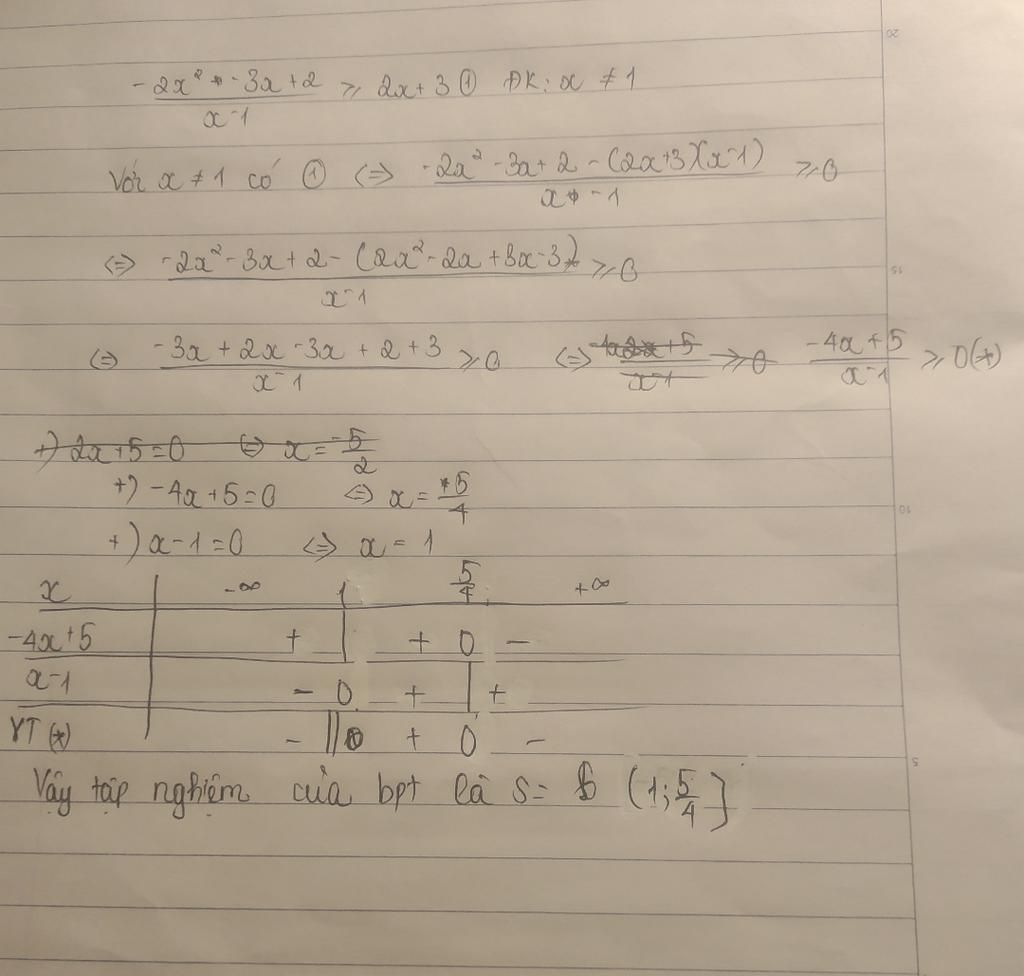 20
-2x² - 3x + 2 / x - 1 ≥ 2x + 3 ① ĐK: x ≠ 1
Với x ≠ 1 có ① <=> -2x² - 3x + 2 - (2x+3)(x-1) / x - 1 ≥ 0
<=> -2x² - 3x + 2 - (2x² - 2x + 3x - 3) / x - 1 ≥ 0
15
<=> -3x + 2x - 3x + 2 + 3 / x - 1 ≥ 0 <=> -4x + 5 / x - 1 ≥ 0 (*)
+) 2x + 5 = 0 <=> x = -5/2
+) -4x + 5 = 0 <=> x = 5/4
10
+) x - 1 = 0 <=> x = 1
x -∞ 1 5/4 +∞
-4x+5 + | + 0 -
x-1 - 0 + | +
VT (*) - || + 0 -
5
Vậy tập nghiệm của bpt là S = (1; 5/4]